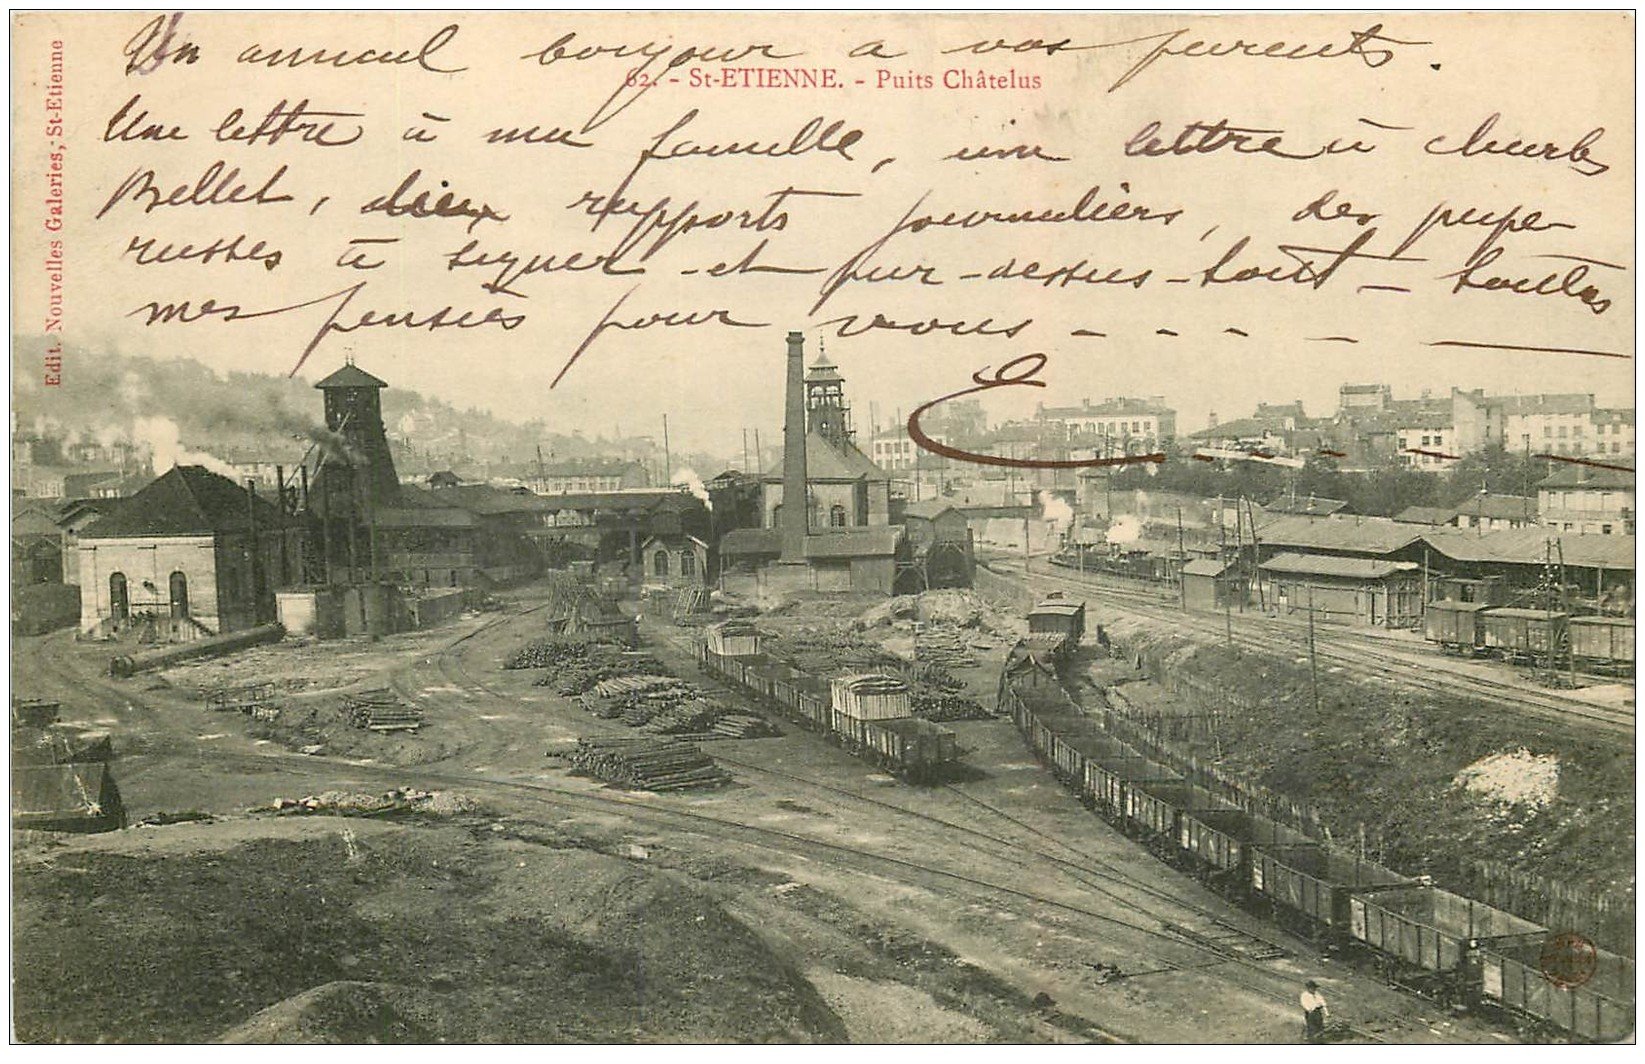 Un amical bonjour a vos parents.
62. - St-ETIENNE. - Puits Châtelus
Une lettre à ma famille, une lettre à Charles
Bellet, deux rapports journaliers, des pape-
rasses à signer - et par-dessus-tout - toutes
mes pensées pour vous - - - -
Edit. Nouvelles Galeries, St-Etienne